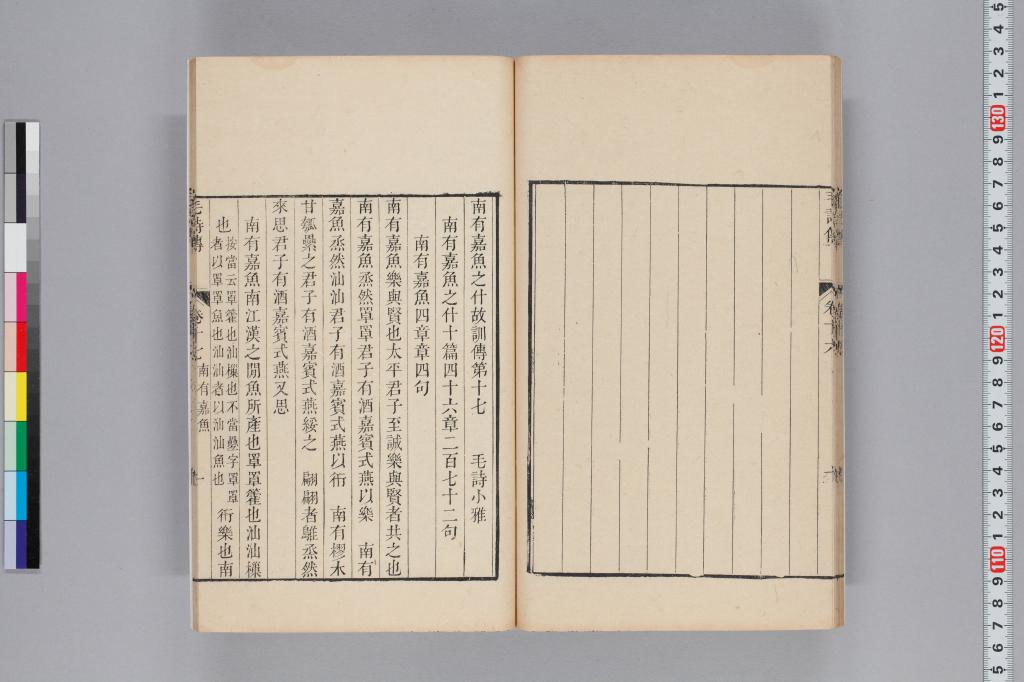 毛詩傳
卷十六
南有嘉魚之什故訓傳第十七　毛詩小雅
南有嘉魚之什十篇四十六章二百七十二句
南有嘉魚四章章四句
南有嘉魚樂與賢也太平君子至誠樂與賢者共之也
南有嘉魚烝然罩罩君子有酒嘉賓式燕以樂　南有
嘉魚烝然汕汕君子有酒嘉賓式燕以衎　南有樛木
甘瓠纍之君子有酒嘉賓式燕綏之　翩翩者鵻烝然
來思君子有酒嘉賓式燕又思
南有嘉魚南江漢之閒魚所產也罩罩籗也汕汕樔
也按當云罩籗也汕樔也不當疊字罩罩者以罩罩魚也汕汕者以汕汕魚也衎樂也南
毛詩傳
卷十七
南有嘉魚
一
5 4 3 2 1 130 9 8 7 6 5 4 3 2 1 120 9 8 7 6 5 4 3 2 1 110 9 8 7 6 5